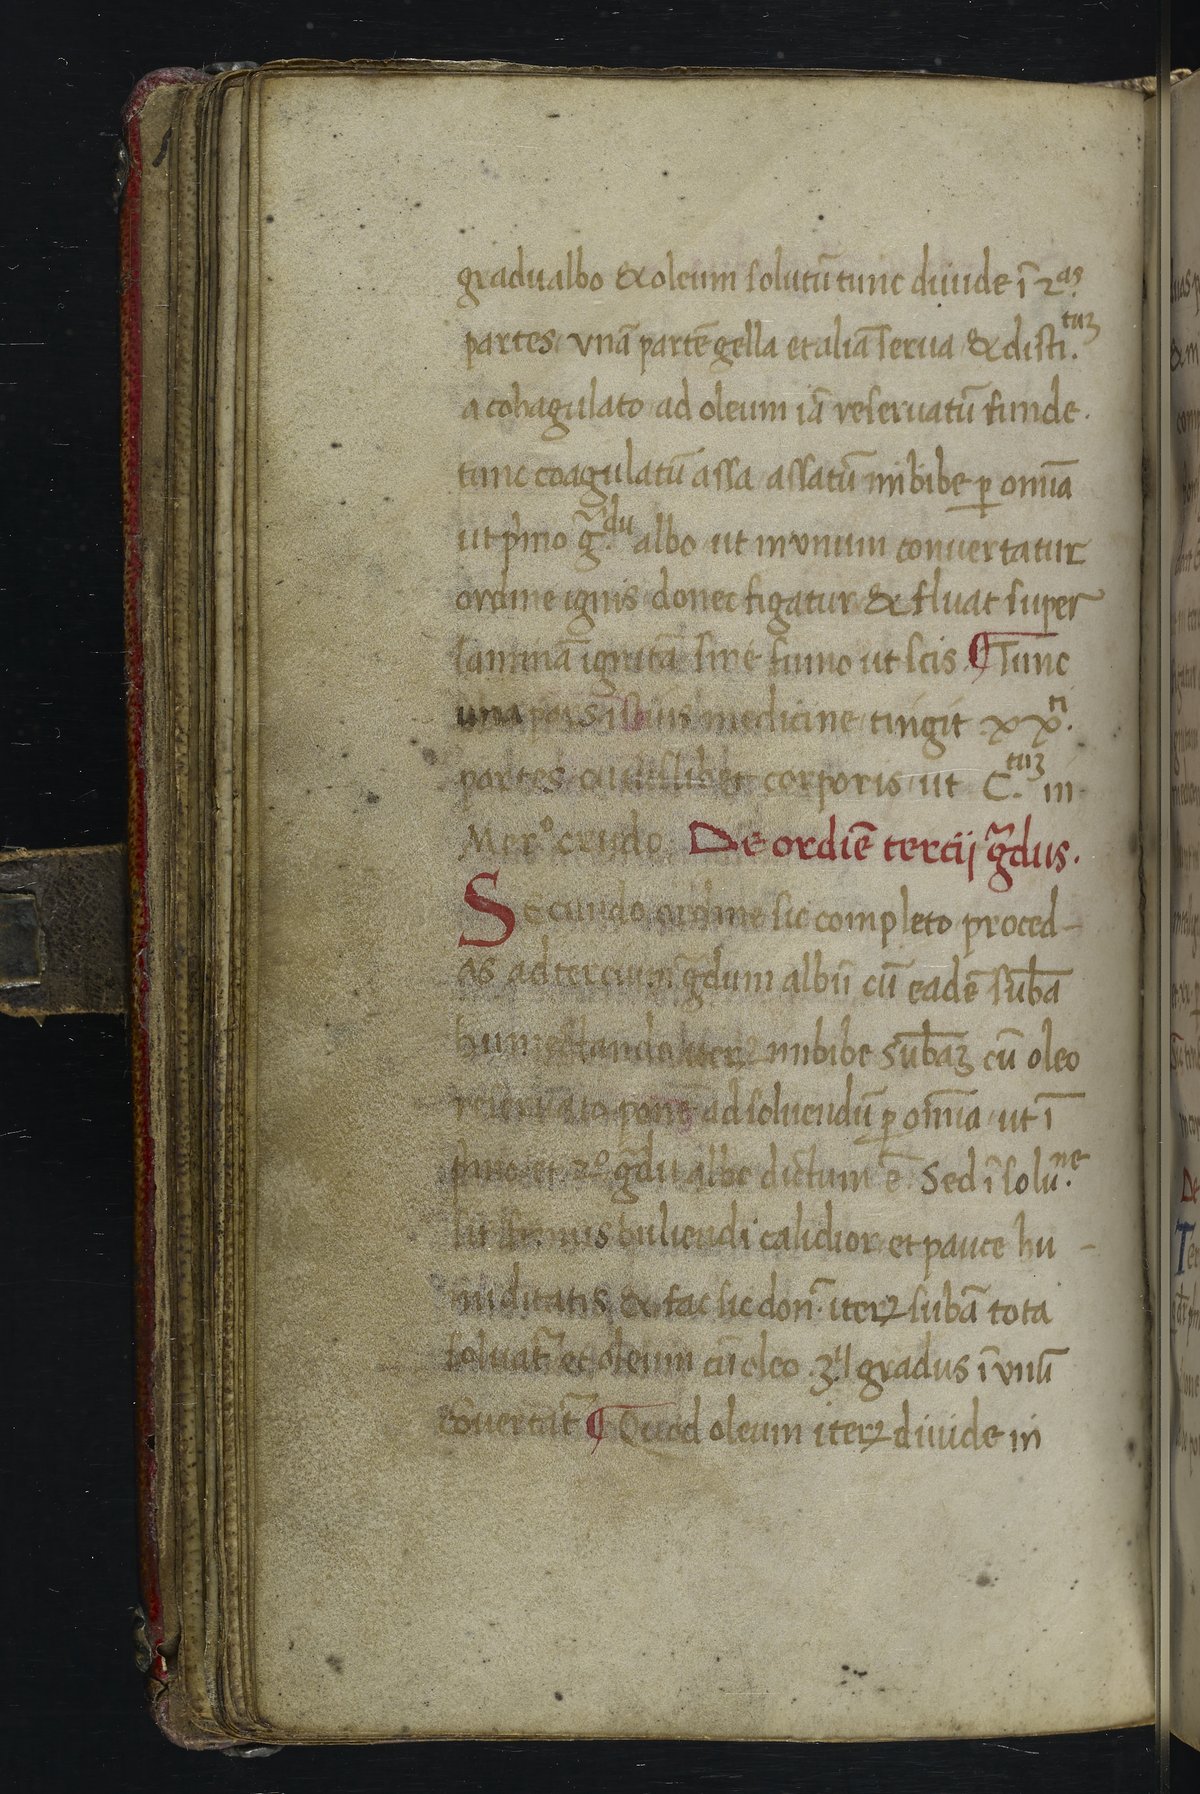 gradu albo & oleum solutū tunc diuide ī 2.as
partes vnā partē gella et aliā serua & disti.tuʒ
a cohagulato ad oleum iā reseruatū funde.
tunc coagulatū assa assatū inbibe ꝑ omīa
ut pͥmo g̃.du albo ut in vnum conuertatur
ordine ignis donec figatur & fluat super
laminā ignitā sine fumo ut scis ¶ Tunc
una pars istius medicine tingit .xx.ti
partes cuiuslibet corporis ut C.tuʒ in
Merº. crudo. De ordiē tercij g̃dus.
Secundo ordine sic completo proced-
as ad tercium g̃dum albū cū eadē sub̄a
humectando iterꝝ inbibe sub̄aʒ cū oleo
reseruato pone ad soluendū ꝑ omīa ut ī
pͥmo et 2º g̃du albo dictum ē Sed ī solu.ne
sit buliendi calidior et pauce hu-
miditatis & fac sic don̄. iterꝝ subā tota
soluat̃ et oleum cū oleo 3.ij gradus ī vnū
cōuertāt̃ ¶ Quod oleum iterꝝ diuide in